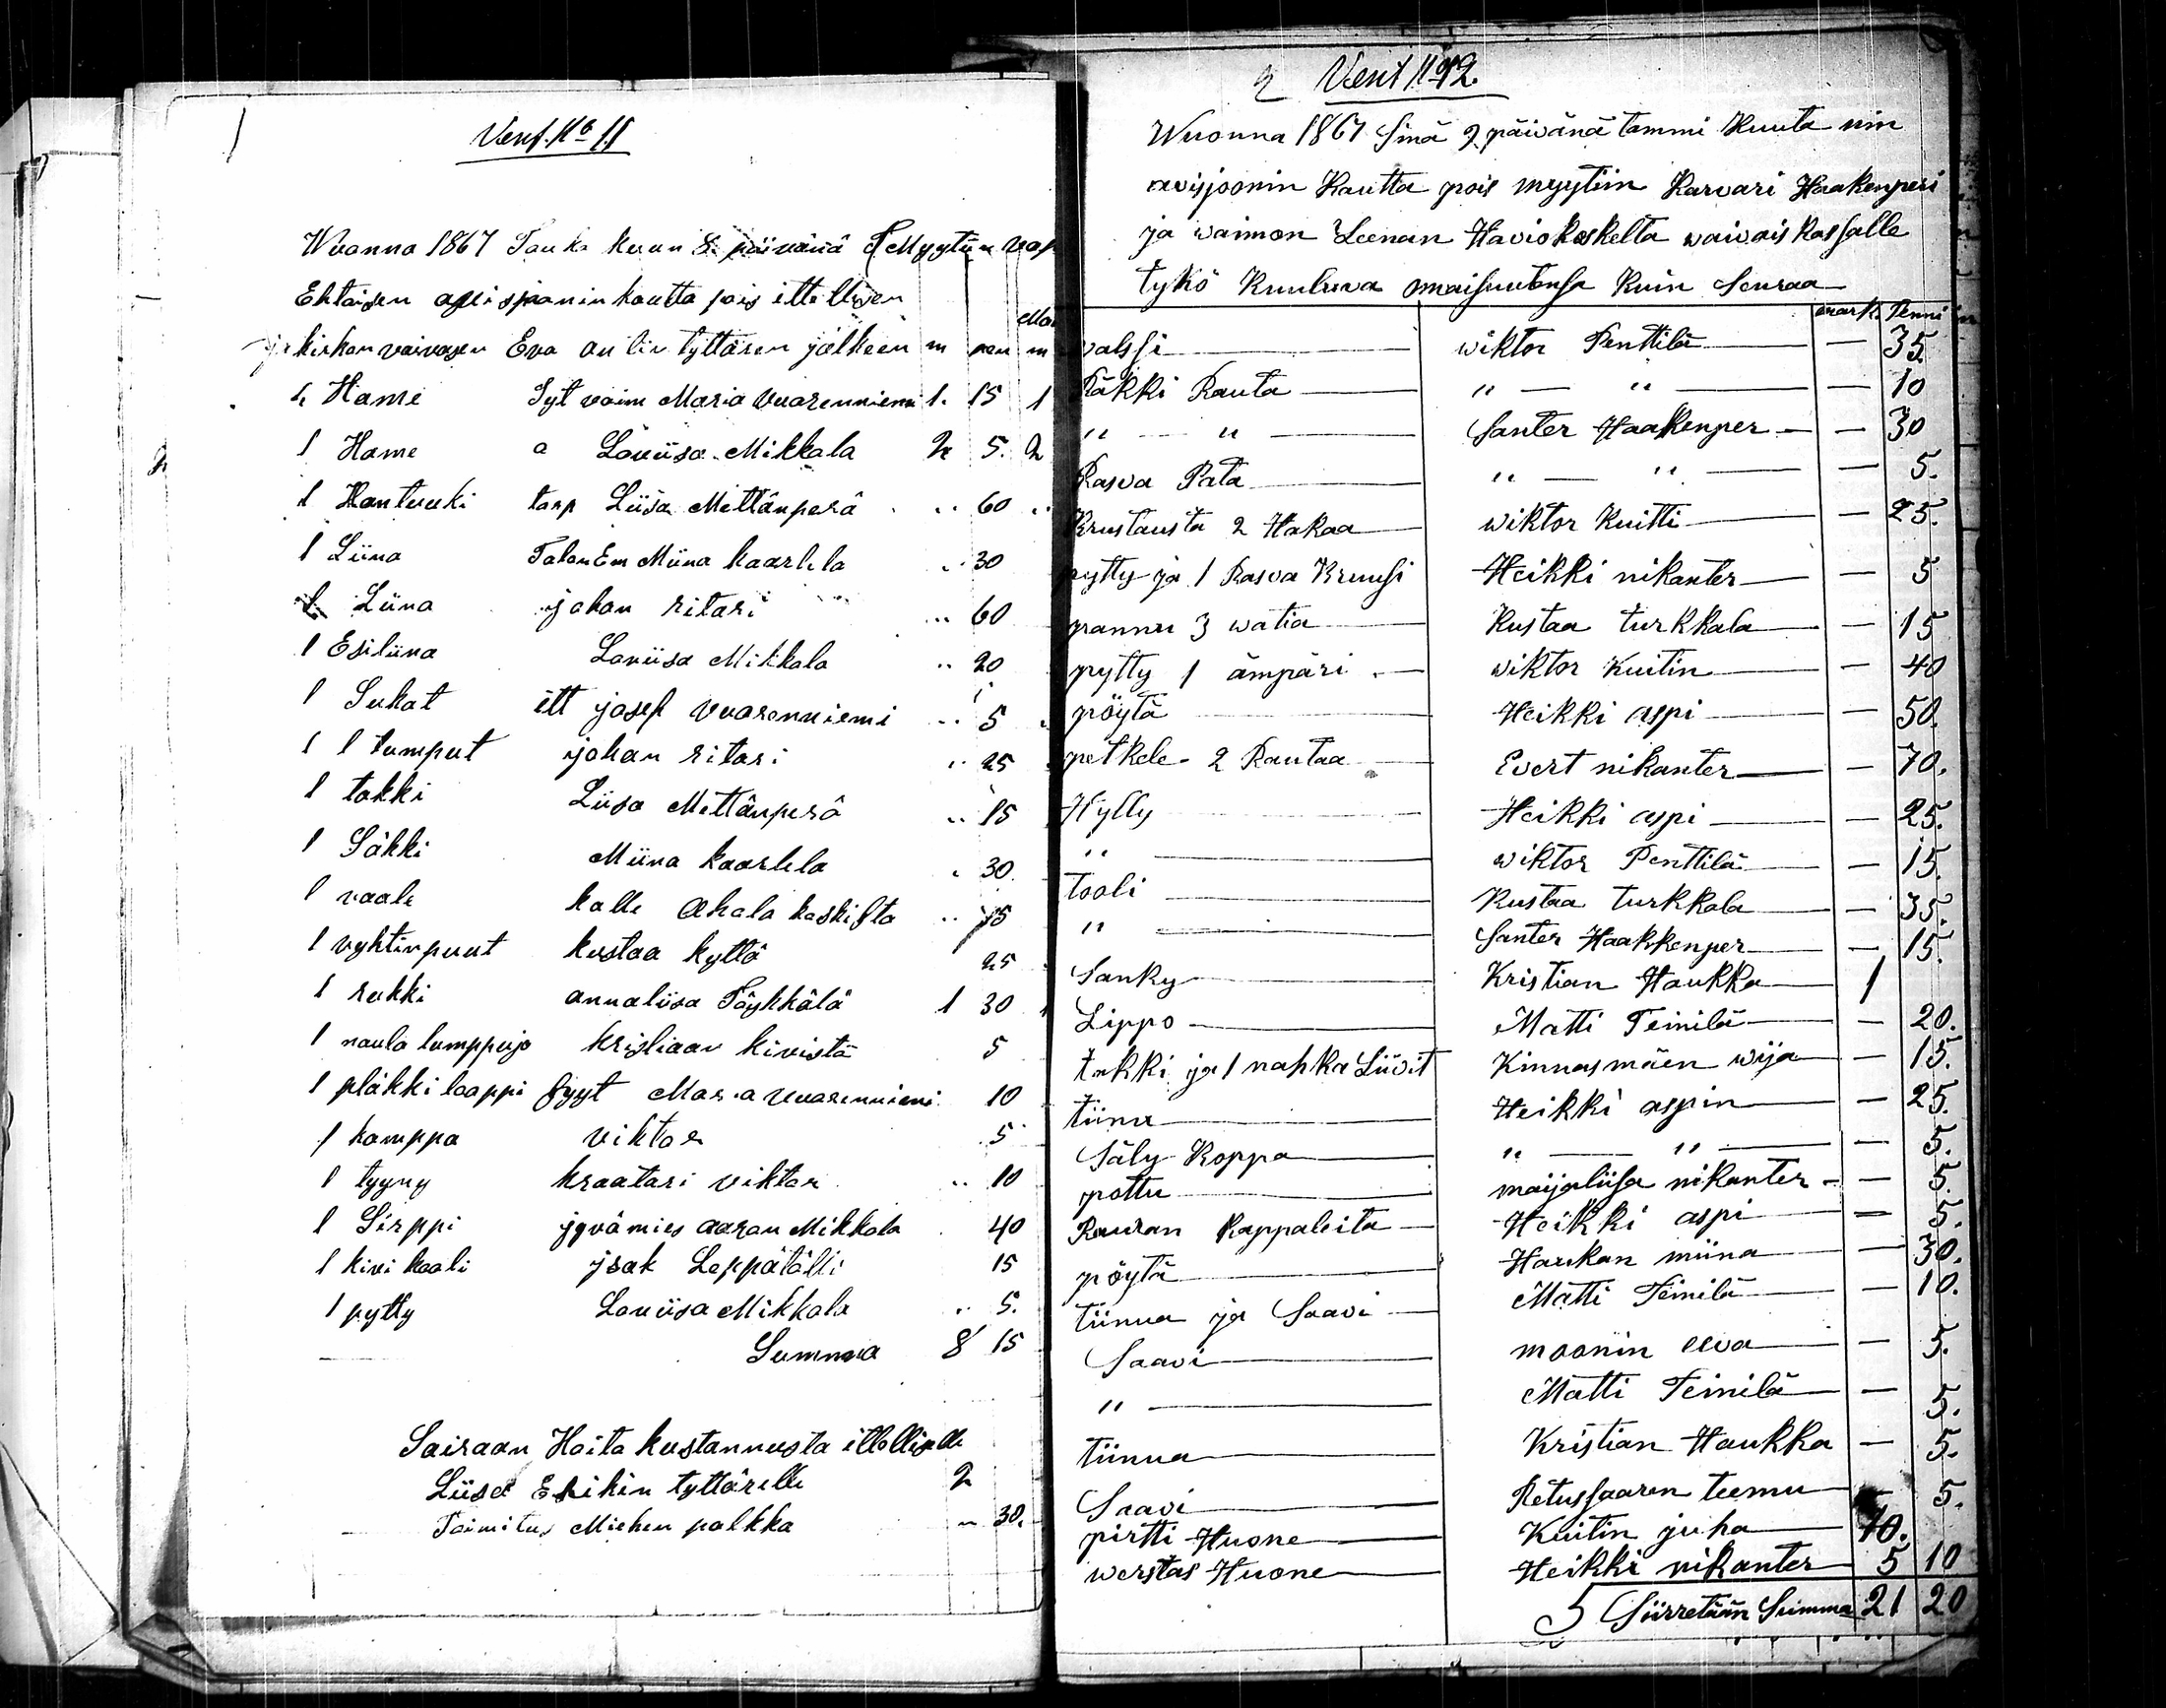 1
Verif. No 11
Wuonna 1867 Touko kuun 8. päivänä Myytiin vap
Ehtoisen auisjoonin kautta pois ittellisen
ja kirkon vaivasen Eva an tin tyttären jälkeen m pen m
1 Hame Syt vaim Maria Vuorenniemi 1. 15 1
1 Hame a Loviisa Mikkala 2 5. 2
1 Hantuuki torp Liisa Mettänperä .. 60 ..
1 Liina Talon Em Miina kaarlela .. 30
1 Liina johan ritari ... 60
1 Esiliina Loviisa Mikkala .. 20
1 Sukat itt josef vuorenniemi .. 5
1 1 tumput johan ritari .. 25
1 takki Liisa Mettänperä .. 15
1 Säkki Miina kaarlela . 30
1 vaale kalle Ahola koskilta .. 75
1 vyhtinpuut kustaa kyttä 25
1 rukki annaliisa Töyhkälä 1 30 1
1 naula lumppuja kristiaan kivistä 5
1 pläkki laappi syyt Maria vuorenniemi 10
1 kamppa viktor 5
1 tyyny kraatari viktor .. 10
1 Sirppi jyvämies aaron Mikkola 40
1 kivi kaali jsak Leppätälli 15
1 pytty Loviisa Mikkola .. 5.
Summa 8 15
Sairaan Hoito kustannusta itlelliselle
Liisa Erikin tyttärelle 2
Toimitus Miehen palkka .. 30.
2 Verif No 12.
Wuonna 1867 Sinä 9 päivänä tammi Kuuta nin
avisjoonin Kautta pois myytiin Karvari Haakenperi
ja waimon Leenan Haviokoskelta waivais kassalle
tykö Kuuluva omaisuutensa Kuin Seuraa
mark. Penni
valssi wiktor Penttilä — 35.
Käkki Rauta " — " — 10
" " Santer Haakenper — 30
Rasva Pata " — " — 5.
Krustausta 2 Hakaa wiktor Kuitti — 25.
pytty ja 1 Rasva Kruusi Heikki nikanter — 5
pannu 3 watia Kustaa turkkala — 15
pytty 1 ämpäri wiktor Kuitin — 40
pöytä Heikki aspi — 50.
petkele 2 Rautaa Evert nikanter — 70.
Hylly Heikki aspi — 25.
" wiktor Penttilä — 15.
tooli Kustaa turkkala — 35.
" Santer Haakkenper — 15.
Sanky Kristian Haukka 1
Lippo Matti Teinilä — 20.
takki ja 1 nahka Liivit Kinnasmäen wija — 15.
tiinu Heikki aspin — 25.
Säly Koppa " — " — 5.
pottu maijaliisa nikanter — 5.
Rauran Kappaleita Heikki aspi — 5.
pöytä Haukan miina — 30.
tiinua ja Saavi Matti Teinilä — 10.
Saavi moonin eeva — 5.
" Matti Teinilä — 5.
tiinua Kristian Haukka — 5.
Saavi Retussaaren teemu — 5.
pirtti Huone Kuitin juha 10.
werstas Huone Heikki nikanter 5 10
Siirretään Summa 21 20